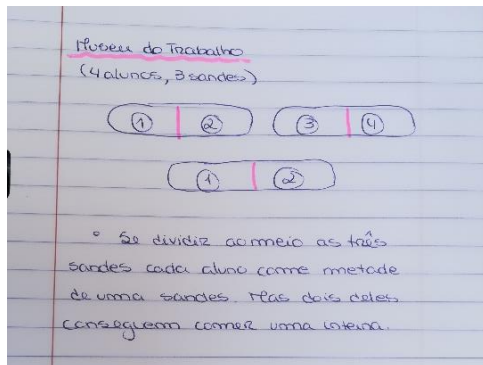 Museu do Trabalho
(4 alunos, 3 sandes)
1 2 3 4
1 2
• Se dividir ao meio as três
sandes cada aluno come metade
de uma sandes. Mas dois deles
conseguem comer uma inteira.